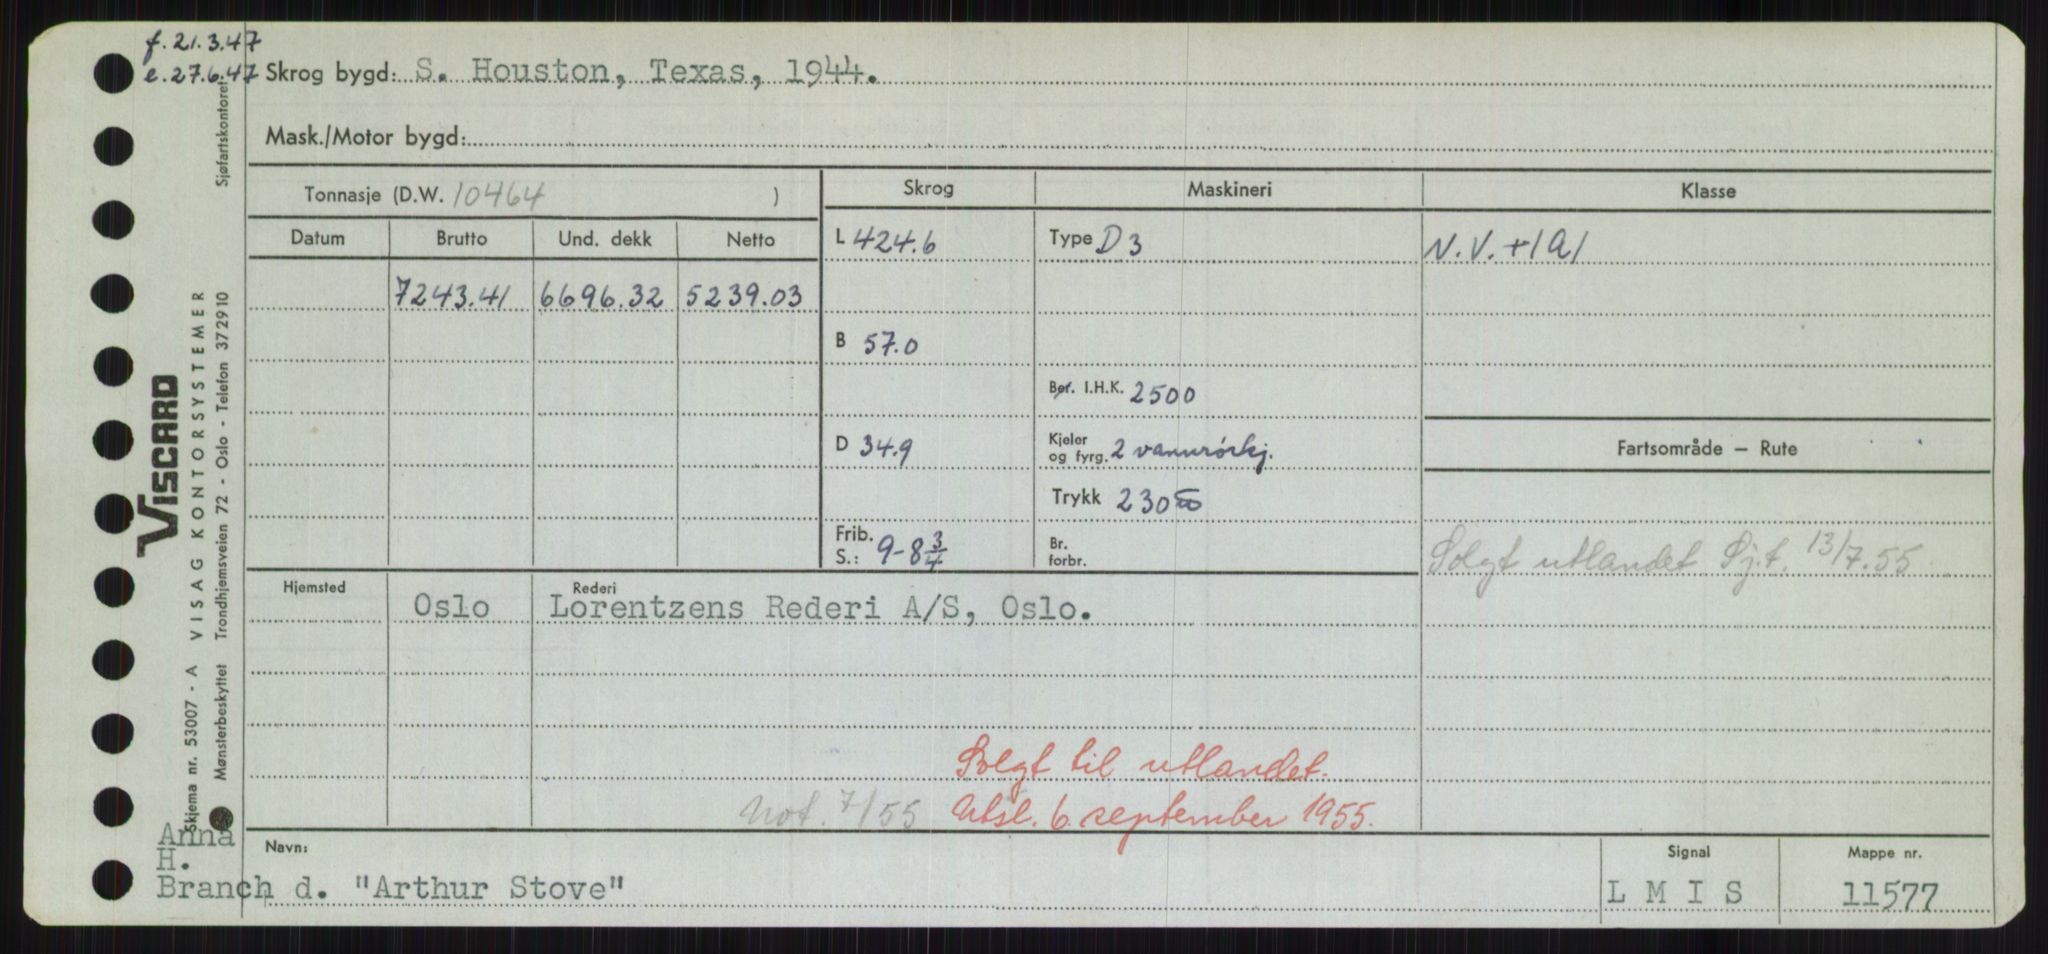 f. 21.3.47
e. 27.6.47
Skrog bygd: S. Houston, Texas, 1944.
Mask./Motor bygd:
Tonnasje (D.W. 10464 )
Skrog
Maskineri
Klasse
Datum
Brutto
Und. dekk
Netto
L 424.6
Type D 3
N.V. +1A1
7243.41 6696.32 5239.03
B 57.0
Ber. I.H.K. 2500
D 34.9
Kjeler
og fyrg. 2 vannrörkj.
Fartsområde — Rute
Trykk 230
Frib.
S.: 9-8 3/4
Br.
forbr.
Solgt utlandet Sj.t. 13/7.55
Hjemsted
Oslo
Rederi
Lorentzens Rederi A/S, Oslo.
Solgt til utlandet.
Not. 7/55
Utsl. 6. september 1955.
Anna
H.
Branch d. "Arthur Stove"
Navn:
Signal
L M I S
Mappe nr.
11577
Sjøfartskontoret
VISCARD
VISAG KONTORSYSTEMER
Skjema nr. 53007 - A
Mønsterbeskyttet Trondhjemsveien 72 - Oslo - Telefon 372910